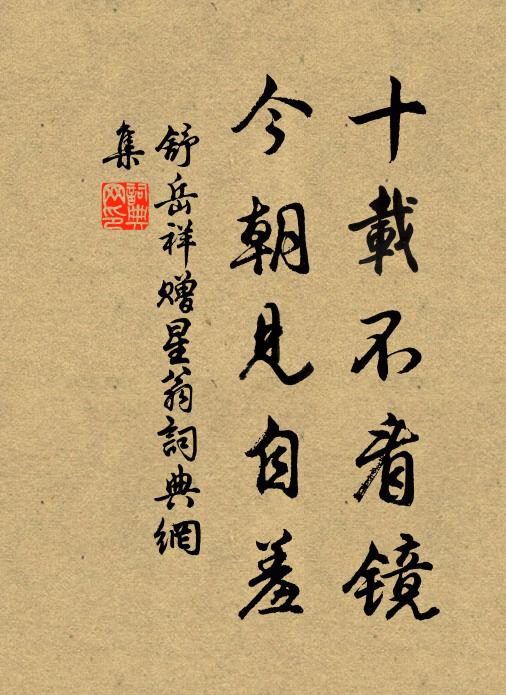 十載不看镜
今朝見自羞
舒岳祥赠星翁詞典網
集
詞典网印